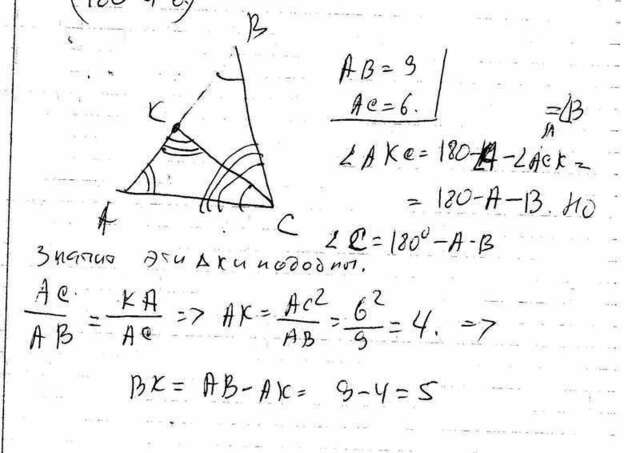 (180
B
AB = 9
AC = 6.
K
= ∠B
∠AKC = 180 - A - ∠ACK =
= 180 - A - B. Но
A
C
∠C = 180° - A - B
Значит эти Δки подобны.
AC/AB = KA/AC => AK = AC²/AB = 6²/9 = 4. =>
BK = AB - AK = 9 - 4 = 5